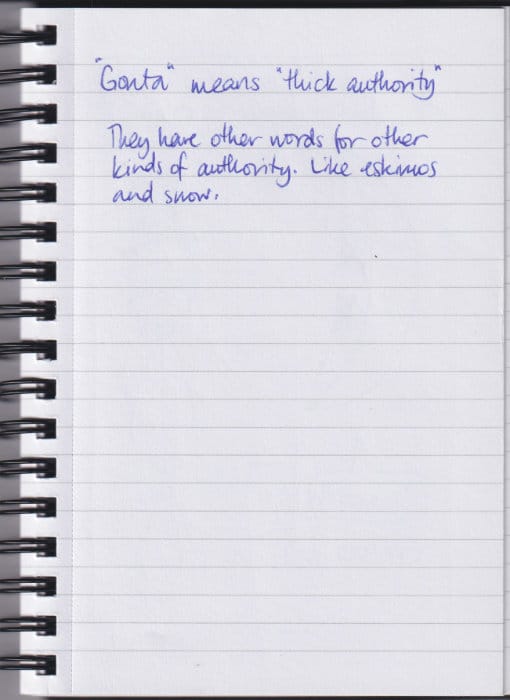 "Gonta" means "thick authority"
They have other words for other
kinds of authority. Like eskimos
and snow.